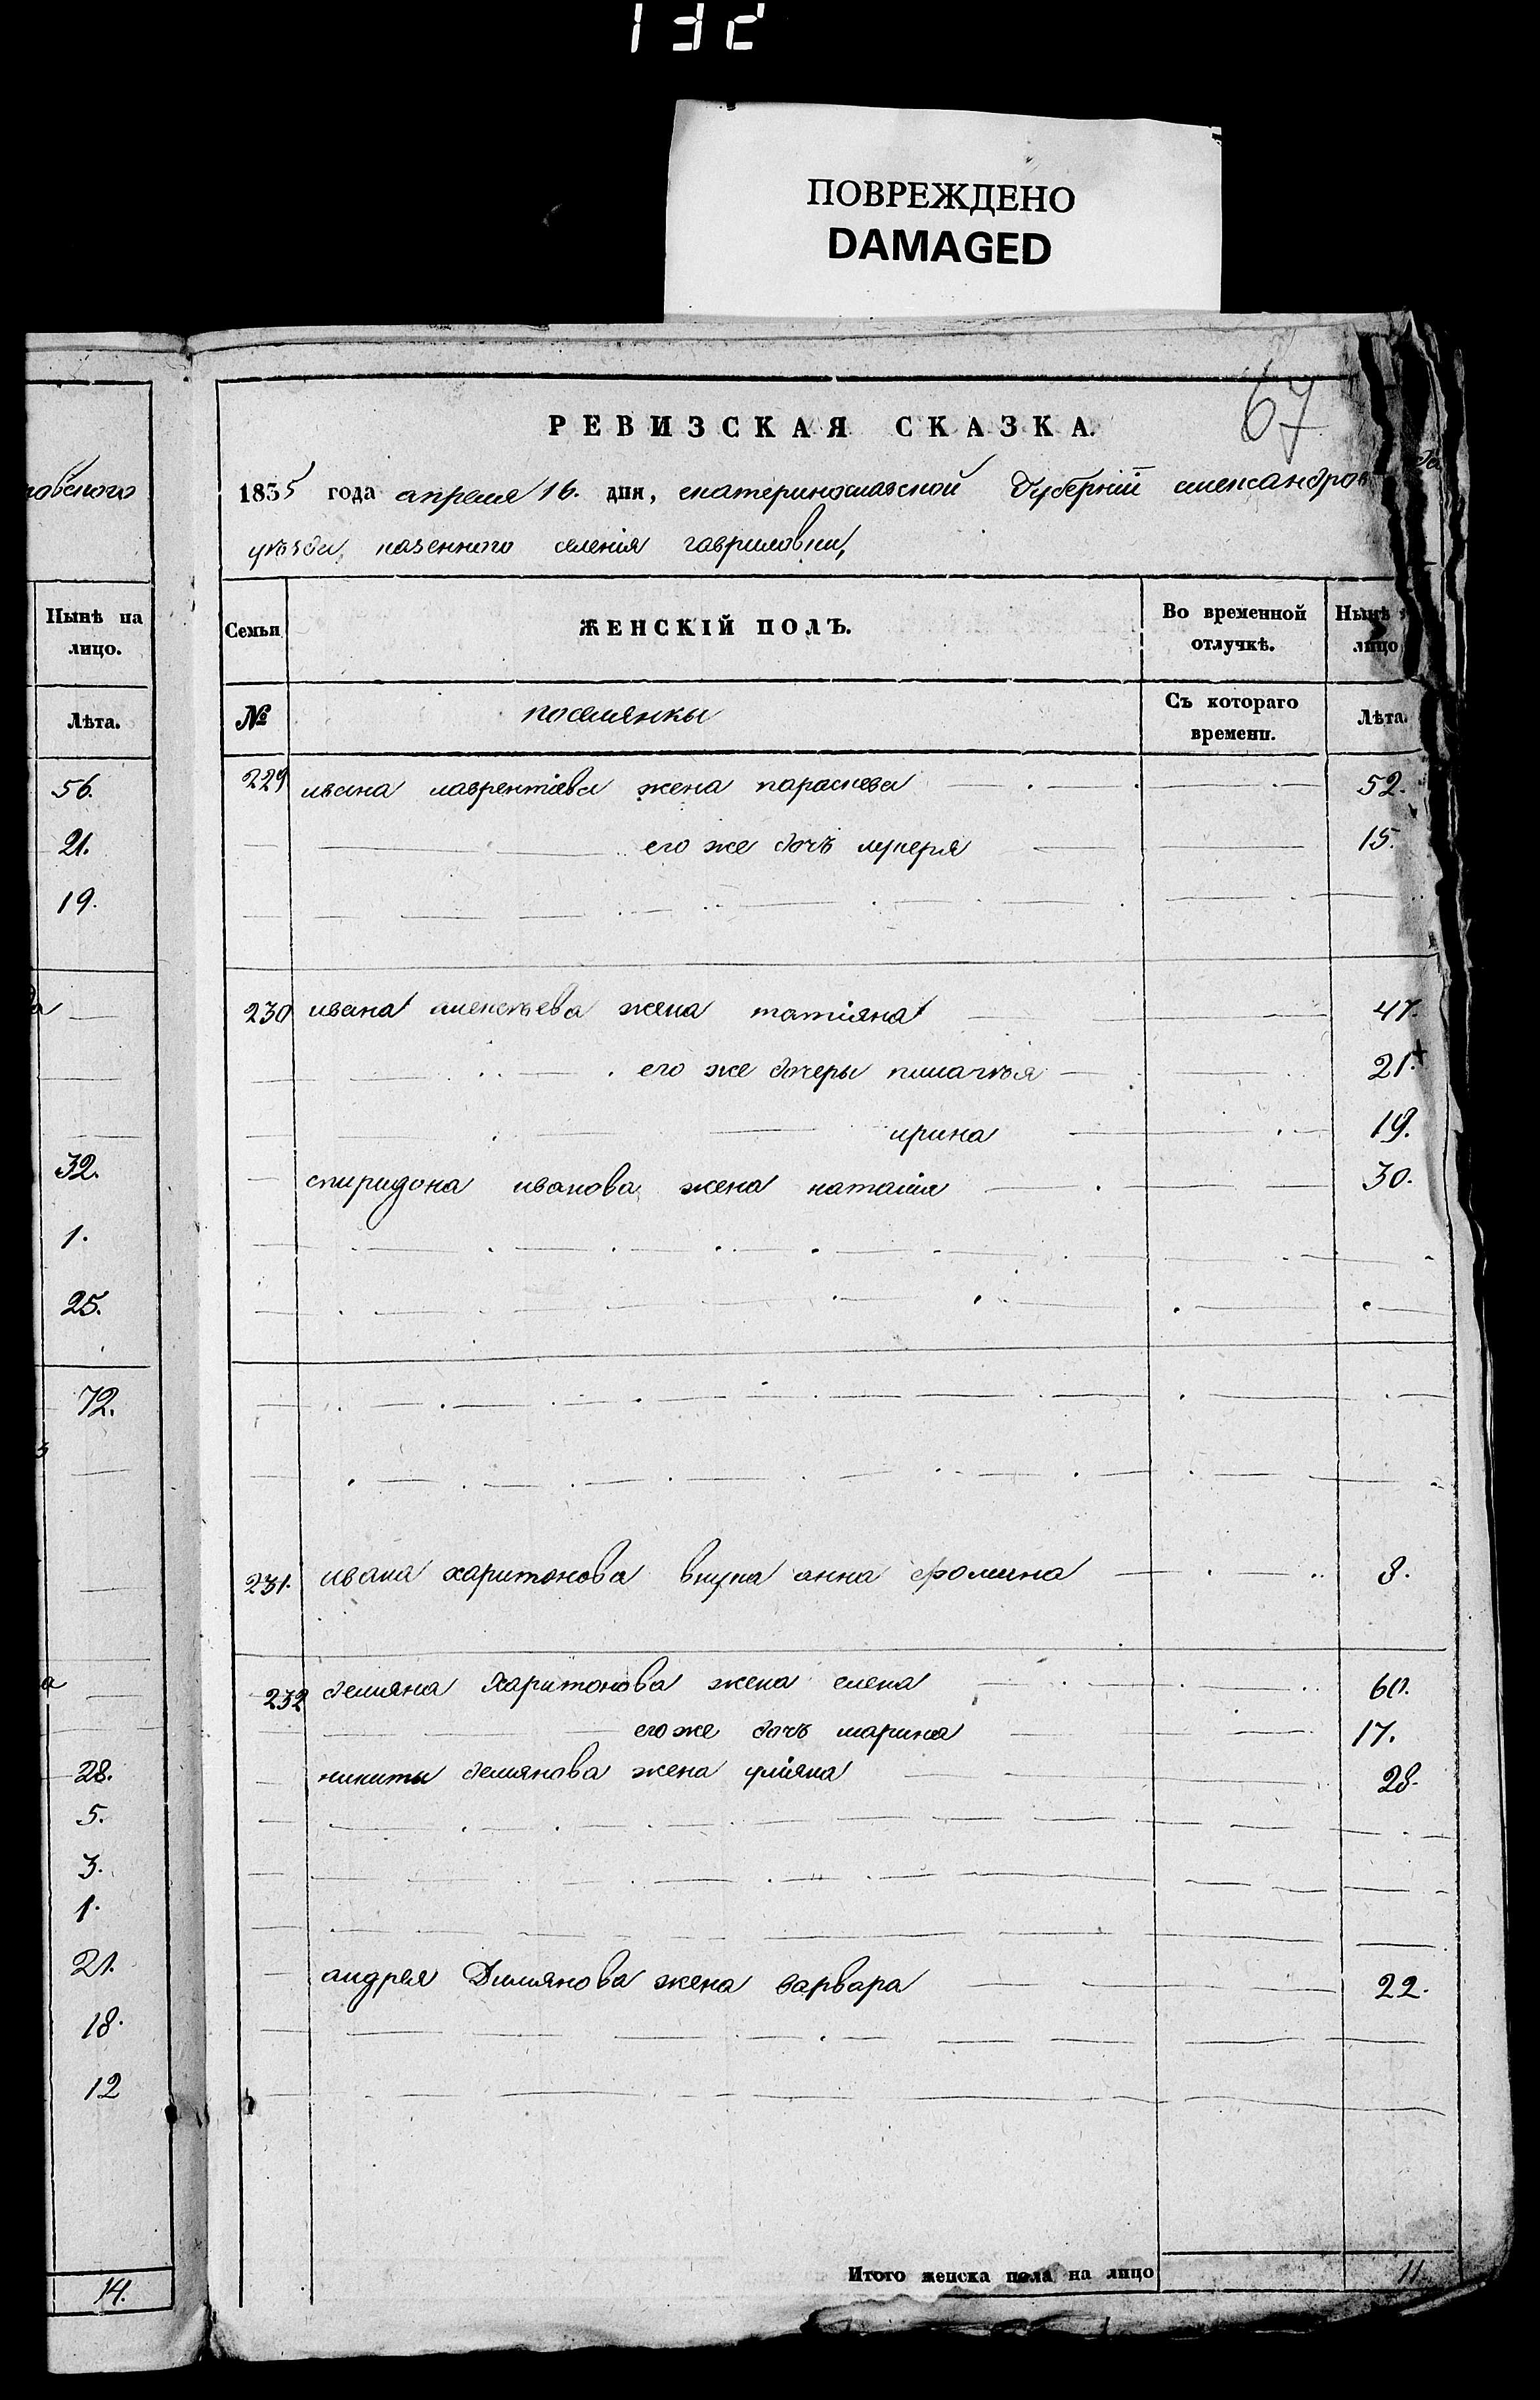 132
ПОВРЕЖДЕНО
DAMAGED
67
РЕВИЗСКАЯ СКАЗКА.
1835 года апреля 16. дня, екатеринославской Губерніи александров
уѣзда, казенного селенія гавриловки,
Семьи
ЖЕНСКІЙ ПОЛЪ.
Во временной отлучкѣ.
Нынѣ лицо
№
поселянкы
Съ котораго времени.
Лѣта.
229 ивана лаврентіева жена параскева 52.
его же дочь лукеря 15.
230 ивана алексѣева жена татіяна 47.
его же дочеры пилагѣя 21.+
ирина 19.
спиридона иванова жена наталія 30.
231. ивана харитонова внука анна фомина 8.
232 демяна Харитонова жена елена 60.
его же дочь марина 17.
никиты демянова жена уліяна 28.
андрея Димянова жена варвара 22.
Итого женска пола на лицо 11
овского
Нынѣ на лицо.
Лѣта.
56.
21.
19.
32.
1.
25.
72.
28.
5.
3.
1.
21.
18.
12
14.